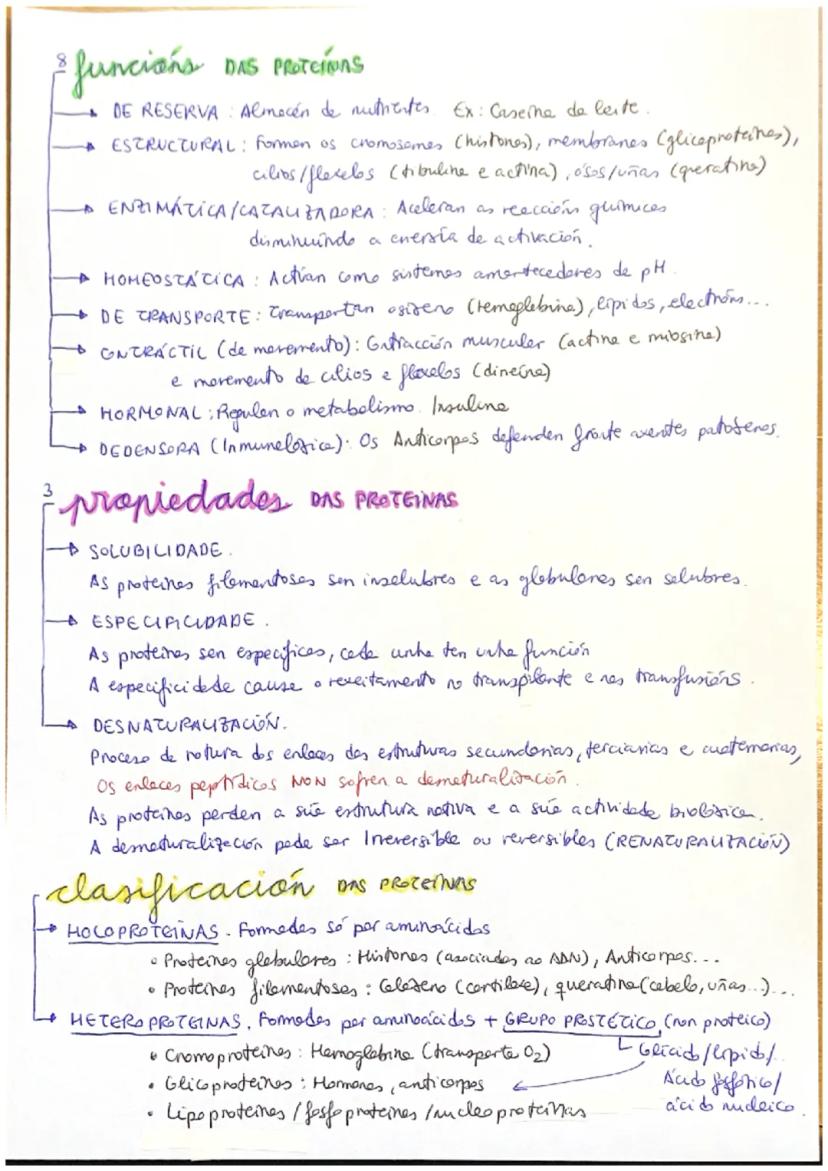 8 funcións DAS PROTEÍNAS
→ DE RESERVA: Almacén de nutrientes. Ex: Caseína do leite.
→ ESTRUCTURAL: Forman os cromosomas (histonas), membranas (glicoproteínas),
cilios/flaxelos (tibulina e actina), ósos/uñas (queratina)
→ ENZIMÁTICA/CATALIZADORA: Aceleran as reaccións químicas
disminuíndo a enerxía de activación.
→ HOMEOSTÁTICA: Actúan como sistemas amortecedores de pH.
→ DE TRANSPORTE: Transportan osíxeno (hemoglobina), lípidos, electróns...
→ CONTRÁCTIL (de movemento): Contracción muscular (actina e miosina)
e movemento de cilios e flaxelos (dineína)
→ HORMONAL: Regulan o metabolismo. Insulina
→ DEDENSORA (Inmunolóxica): Os Anticorpos defenden fronte axentes patóxenos.
3 propiedades DAS PROTEINAS
→ SOLUBILIDADE.
As proteínas filamentosas son insolubres e as globulares son solubres.
→ ESPECIFICIDADE.
As proteínas son específicas, cada unha ten unha función
A especificidade causa o rexeitamento no transplante e nas transfusións.
→ DESNATURALIZACIÓN.
Proceso de rotura dos enlaces das estruturas secundarias, terciarias e cuaternarias,
Os enlaces peptídicos NON sofren a desnaturalización.
As proteínas perden a súa estrutura nativa e a súa actividade biolóxica.
A desnaturalización pode ser Irreversible ou reversibles (RENATURALIZACIÓN)
clasificación DAS PROTEÍNAS
→ HOLOPROTEÍNAS. Formadas só por aminoácidos
• Proteínas globulares: Histonas (asociadas ao ADN), Anticorpos...
• Proteínas filamentosas: Coláxeno (cartílaxe), queratina (cabelo, uñas...)...
→ HETEROPROTEINAS. Formadas por aminoácidos + GRUPO PROSTÉTICO (non proteico)
• Cromoproteínas: Hemoglobina (transporte O2)
Glícido/lípido/
• Glicoproteínas: Hormonas, anticorpos
Ácido fosfórico/
• Lipoproteínas / fosfoproteínas / nucleoproteínas
ácido nucleico.